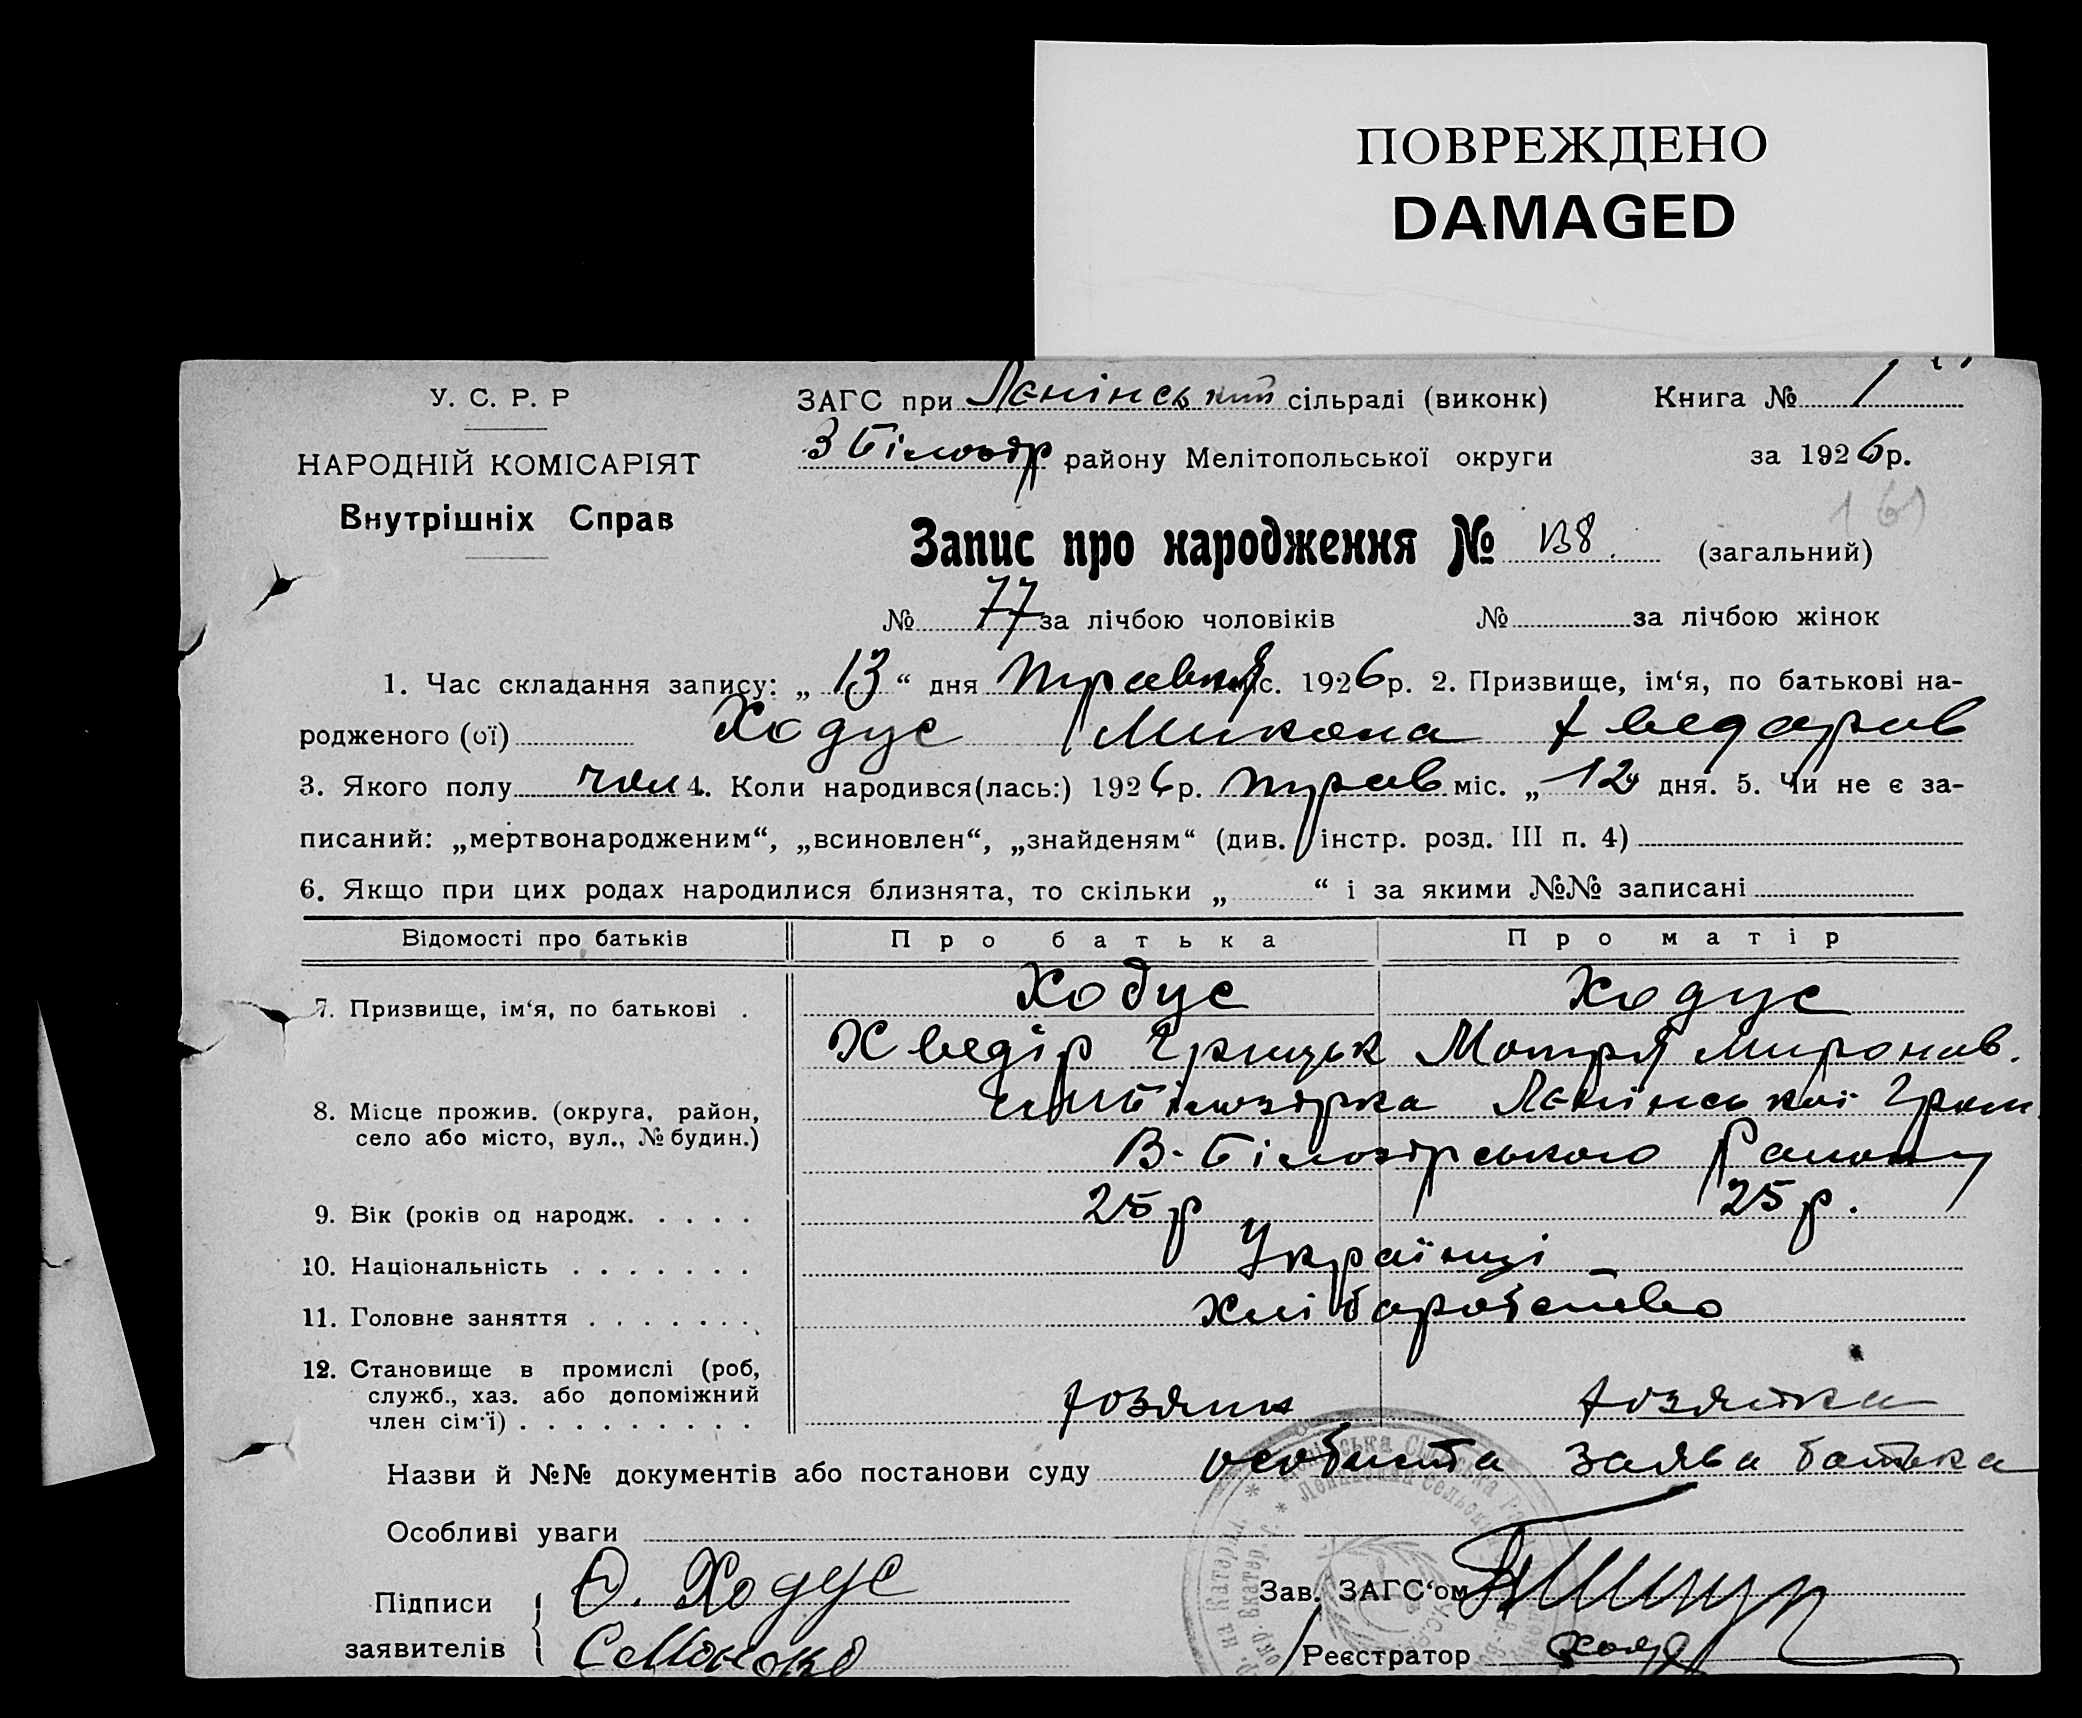 ПОВРЕЖДЕНО
DAMAGED
У. С. Р. Р
НАРОДНІЙ КОМІСАРІЯТ
Внутрішніх Справ
ЗАГС при Ленінський сільраді (виконк)
Книга № 1
району Мелітопольської округи
за 1926 р.
Запис про народження № 138. (загальний)
№ 77 за лічбою чоловіків № за лічбою жінок
1. Час складання запису: „ 13 “ дня травня міс. 1926 р. 2. Призвище, ім‘я, по батькові на-
родженого (ої) Ходус Микола Хведоров
3. Якого полу чол 4. Коли народився(лась:) 1926 р. трав міс. „ 12 „ дня. 5. Чи не є за-
писаний: „мертвонародженим“, „всиновлен“, „знайденям“ (див. інстр. розд. III п. 4)
6. Якщо при цих родах народилися близнята, то скільки „ “ і за якими №№ записані
Відомості про батьків
Про батька
Про матір
7. Призвище, ім‘я, по батькові .
Ходус
Ходус
Хведір Грицьк
Мотря Миронов.
8. Місце прожив. (округа, район,
село або місто, вул., № будин.)
Білозірка Ленінської Гром
В-Білозірського Району
9. Вік (років од народж. . . . .
25 р
25 р.
10. Національність . . . . . . .
Українці
11. Головне заняття . . . . . . .
Хліборобство
12. Становище в промислі (роб,
служб., хаз. або допоміжний
член сім‘ї) . . . . . . . . .
хозяин
хозяйка
Назви й №№ документів або постанови суду особиста заява батька
Особливі уваги
Підписи
заявителів
Ѳ. Ходус
Зав. ЗАГС‘ом
Реєстратор